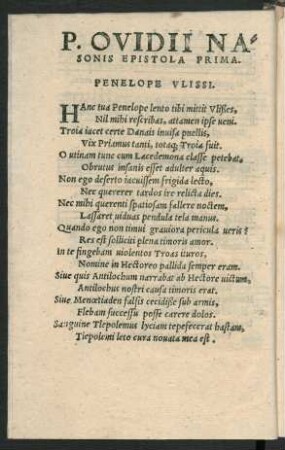 P. OVIDII NA
SONIS EPISTOLA PRIMA.
PENELOPE VLISSI.
HAnc tua Penelope lento tibi mittit Vlisses,
Nil mihi rescribas, attamen ipse ueni.
Troia iacet certe Danais inuisa puellis,
Vix Priamus tanti, totaq; Troia fuit.
O utinam tunc cum Lacedemona classe petebat,
Obrutus insanis esset adulter aquis.
Non ego deserto iacuissem frigida lecto,
Nec quererer tardos ire relicta dies.
Nec mihi querenti spatiosam fallere noctem,
Lassaret uiduas pendula tela manus.
Quando ego non timui grauiora pericula ueris?
Res est solliciti plena timoris amor.
In te fingebam uiolentos Troas ituros,
Nomine in Hectoreo pallida semper eram.
Siue quis Antilochum narrabat ab Hectore uictum,
Antilochus nostri causa timoris erat.
Siue Menœtiaden falsis cecidisse sub armis,
Flebam successu posse carere dolos.
Sanguine Tlepolemus lyciam tepefecerat hastam,
Tlepolemi leto cura nouata mea est.